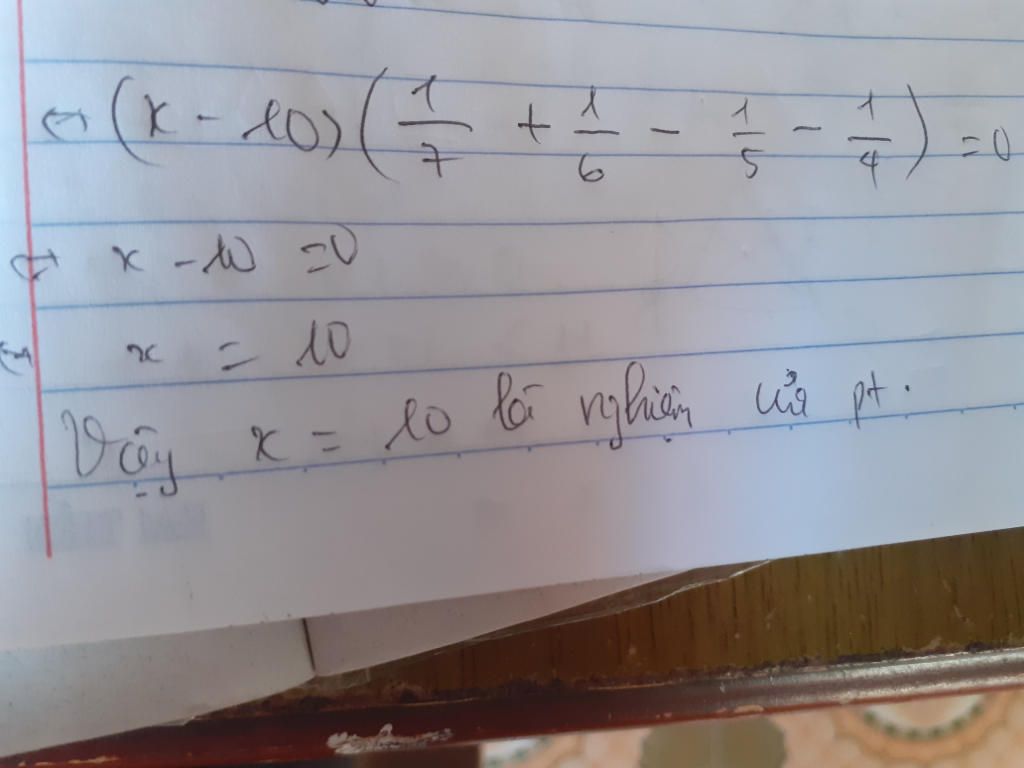 ⇔ (x - 10) (1/7 + 1/6 - 1/5 - 1/4) = 0
⇔ x - 10 = 0
⇔ x = 10
Vậy x = 10 là nghiệm của pt.